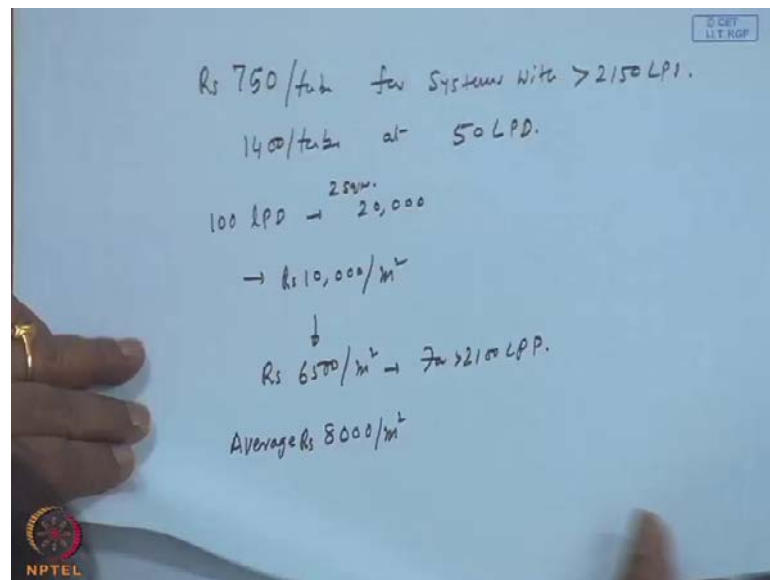 © CET
I.I.T. KGP
Rs 750/tube for Systems with > 2150 LPD.
1400/tube at 50 LPD.
2 sqm.
100 LPD → 20,000
→ Rs 10,000/m²
↓
Rs 6500/m² → For >2100 LPD.
Average Rs 8000/m²
NPTEL